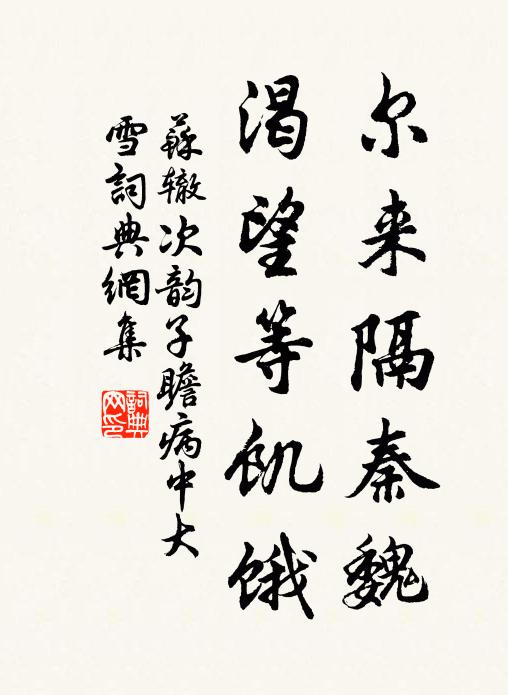 尔来隔秦魏
渴望等饥饿
蘇辙次韵子瞻病中大
雪詞典網集
詞典
网印